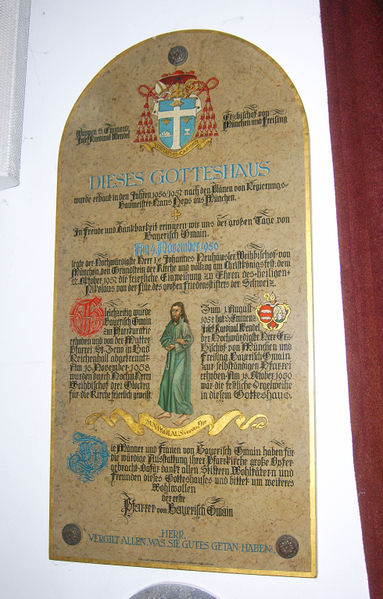 Wappen S. Eminenz
Josef Kardinal Wendel
Erzbischof von
München und Freising
DIESES GOTTESHAUS
wurde erbaut in den Jahren 1956/1957 nach den Plänen von Regierungs-
baumeister Hans Heps aus München.
In Freude und Dankbarkeit erinnern wir uns der großen Tage von
Bayerisch Gmain.
Am 4. November 1956
legte der Hochwürdigste Herr Dr. Johannes Neuhäusler, Weihbischof von
München, den Grundstein der Kirche und vollzog am Christkönigsfest, dem
27. Oktober 1957 die feierliche Einweihung zu Ehren des heiligen
Nikolaus von der Flüe des großen Friedensstifters der Schweiz.
Gleichzeitig wurde
Bayerisch Gmain
zur Pfarrkuratie
erhoben und von der Mutter-
Pfarrei St. Zeno in Bad
Reichenhall abgetrennt.
Am 16. November 1958
wurden durch Hochw. Herrn
Weihbischof drei Glocken
für die Kirche feierlich geweiht.
Zum 1. August
1959 hat S. Eminenz
Josef Kardinal Wendel,
der Hochwürdigste Herr Erz-
bischof von München und
Freising, Bayerisch Gmain
zur selbständigen Pfarrei
erhoben. Am 18. Oktober 1959
war die festliche Orgelweihe
in diesem Gotteshaus.
Die Männer und Frauen von Bayerisch Gmain haben für
die würdige Ausstattung ihrer Pfarrkirche große Opfer
gebracht. Dafür dankt allen Stiftern, Wohltätern und
Freunden dieses Gotteshauses und bittet um weiteres
Wohlwollen
der erste
Pfarrer von Bayerisch Gmain
HERR,
VERGILT ALLEN, WAS SIE GUTES GETAN HABEN.